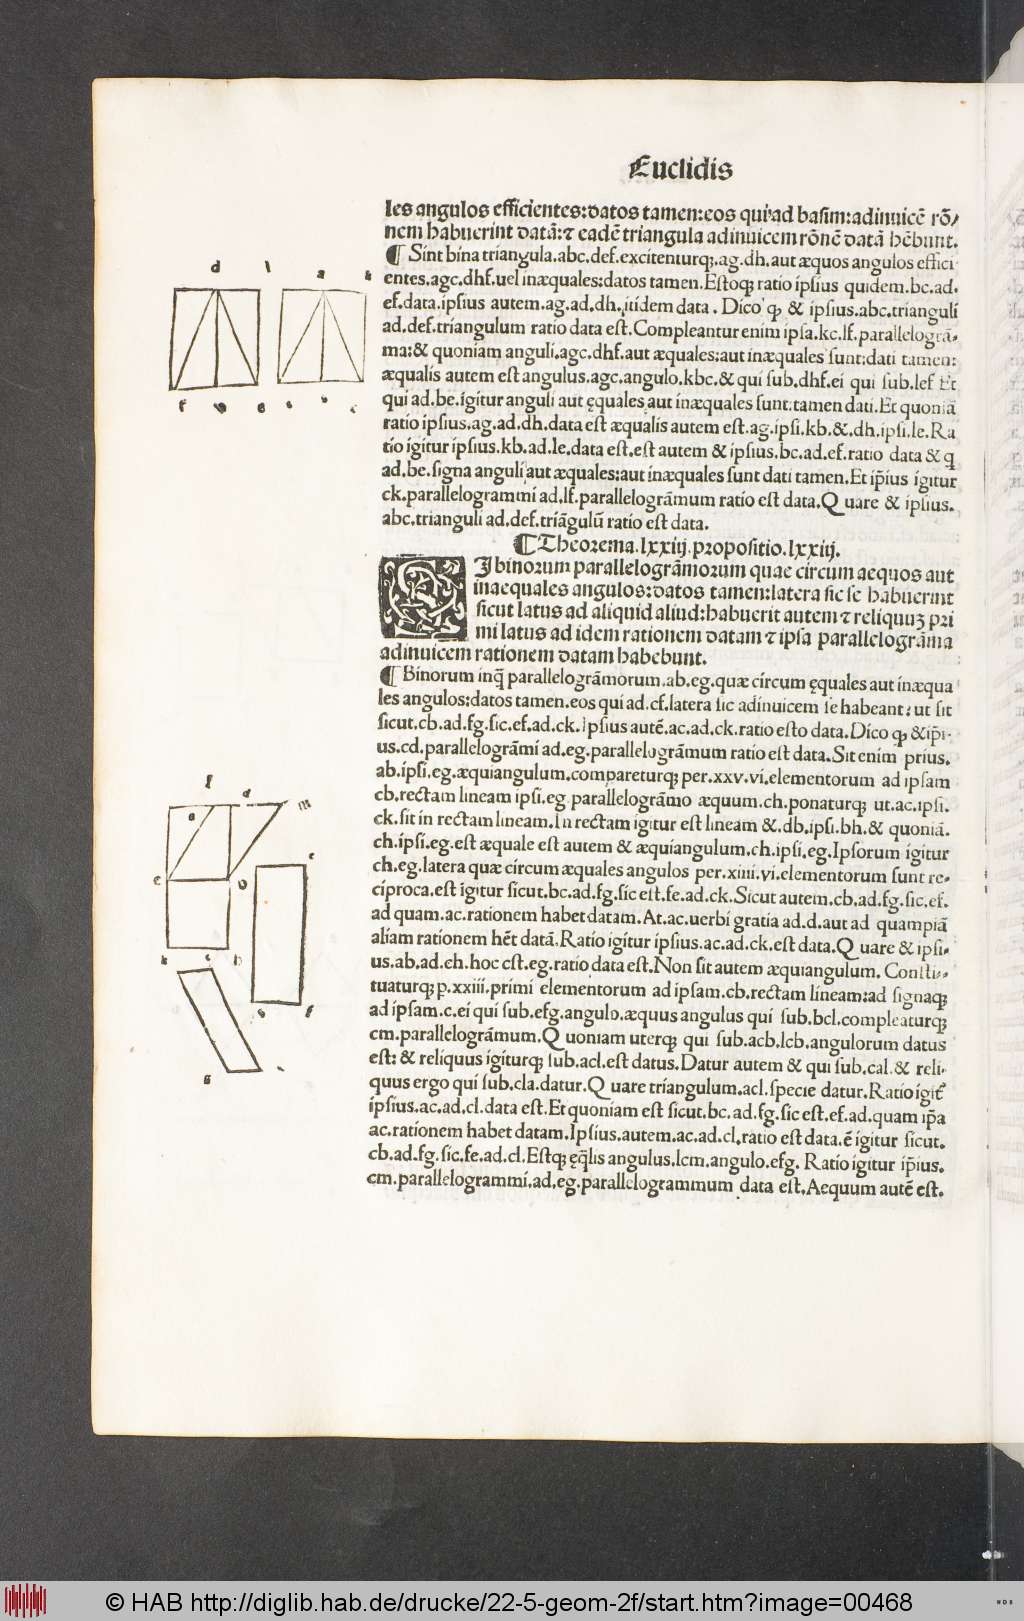 Euclidis
les angulos efficientes:datos tamen:eos qui ad basim:adinuicē rō/
nem habuerint datā:⁊ eadē triangula adinuicem rōnē datā hēbunt.
¶ Sint bina triangula.abc.def.excitenturqꝫ.ag.dh.aut æquos angulos effici
entes.agc.dhf.uel inæquales:datos tamen.Estoqꝫ ratio ipsius quidem.bc.ad.
ef.data.ipsius autem.ag.ad.dh.itidem data. Dico qꝫ & ipsius.abc.trianguli
ad.def.triangulum ratio data est.Compleantur enim ipsa.kc.lf.parallelogrā-
ma:& quoniam anguli.agc.dhf.aut æquales:aut inæquales sunt:dati tamen:
æqualis autem est angulus.agc.angulo.kbc.& qui sub.dhf.ei qui sub.lef Et
qui ad.be.igitur anguli aut ęquales aut inæquales sunt:tamen dati.Et quoniā
ratio ipsius.ag.ad.dh.data est æqualis autem est.ag.ipsi.kb.&.dh.ipsi.le.Ra
tio igitur ipsius.kb.ad.le.data est.est autem & ipsius.bc.ad.ef.ratio data & q
ad.be.signa anguli aut æquales:aut inæquales sunt dati tamen.Et ip̄ius igitur
ck.parallelogrammi ad.lf.parallelogrāmum ratio est data.Quare & ipsius.
abc.trianguli ad.def.triāgulū ratio est data.
¶Theorema.lxxiij.propositio.lxxiij.
SI binorum parallelogrāmorum quae circum aequos aut
inaequales angulos:datos tamen:latera sic se habuerint
sicut latus ad aliquid aliud:habuerit autem ⁊ reliquuʒ pri
mi latus ad idem rationem datam ⁊ ipsa parallelogrāma
adinuicem rationem datam habebunt.
¶ Binorum inq̄ parallelogrāmorum.ab.eg.quæ circum ęquales aut inæqua
les angulos:datos tamen.eos qui ad.cf.latera sic adinuicem se habeant:ut sit
sicut.cb.ad.fg.sic.ef.ad.ck.Ipsius autē.ac.ad.ck.ratio esto data.Dico qꝫ &ip̄i-
us.cd.parallelogrāmi ad.eg.parallelogrāmum ratio est data.Sit enim prius.
ab.ipsi.eg.æquiangulum.compareturqꝫ per.xxv.vi.elementorum ad ipsam
cb.rectam lineam ipsi.eg.parallelogrāmo æquum.ch.ponaturqꝫ ut.ac.ipsi.
ck.sit in rectam lineam.In rectam igitur est lineam &.db.ipsi.bh.& quoniā.
ch.ipsi.eg.est æquale est autem & æquiangulum.ch.ipsi.eg.Ipsorum igitur
ch.eg.latera quæ circum æquales angulos per.xiiii.vi.elementorum sunt re-
ciproca.est igitur sicut.bc.ad.fg.sic est.fe.ad.ck.Sicut autem.cb.ad.fg.sic.ef.
ad quam.ac.rationem habet datam.At.ac.uerbi gratia ad.d.aut ad quampiā
aliam rationem hēt datā.Ratio igitur ipsius.ac.ad.ck.est data.Quare & ipsi-
us.ab.ad.ch.hoc est.eg.ratio data est.Non sit autem æquiangulum. Consti-
tuaturqꝫ p.xxiii.primi elementorum ad ipsam.cb.rectam lineam:ad signaqꝫ
ad ipsam.c.ei qui sub.efg.angulo.æquus angulus qui sub.bcl.compleaturqꝫ
cm.parallelogrāmum.Quoniam uterqꝫ qui sub.acb.lcb.angulorum datus
est:& reliquus igiturqꝫ sub.acl.est datus.Datur autem & qui sub.cal.& reli-
quus ergo qui sub.cla.datur.Quare triangulum.acl.specie datur.Ratio igit̄
ipsius.ac.ad.cl.data est.Et quoniam est sicut.bc.ad.fg.sic est.ef.ad.quam ip̄a
ac.rationem habet datam.Ipsius.autem.ac.ad.cl.ratio est data.ē igitur sicut.
cb.ad.fg.sic.fe.ad.cl.Estqꝫ ęq̄lis angulus.lcm.angulo.efg. Ratio igitur ip̄ius.
cm.parallelogrammi.ad.eg.parallelogrammum data est.Aequum autē est.
d l a k
f h e c g b
l d m
a
c b e
k c h
g f
G
© HAB http://diglib.hab.de/drucke/22-5-geom-2f/start.htm?image=00468